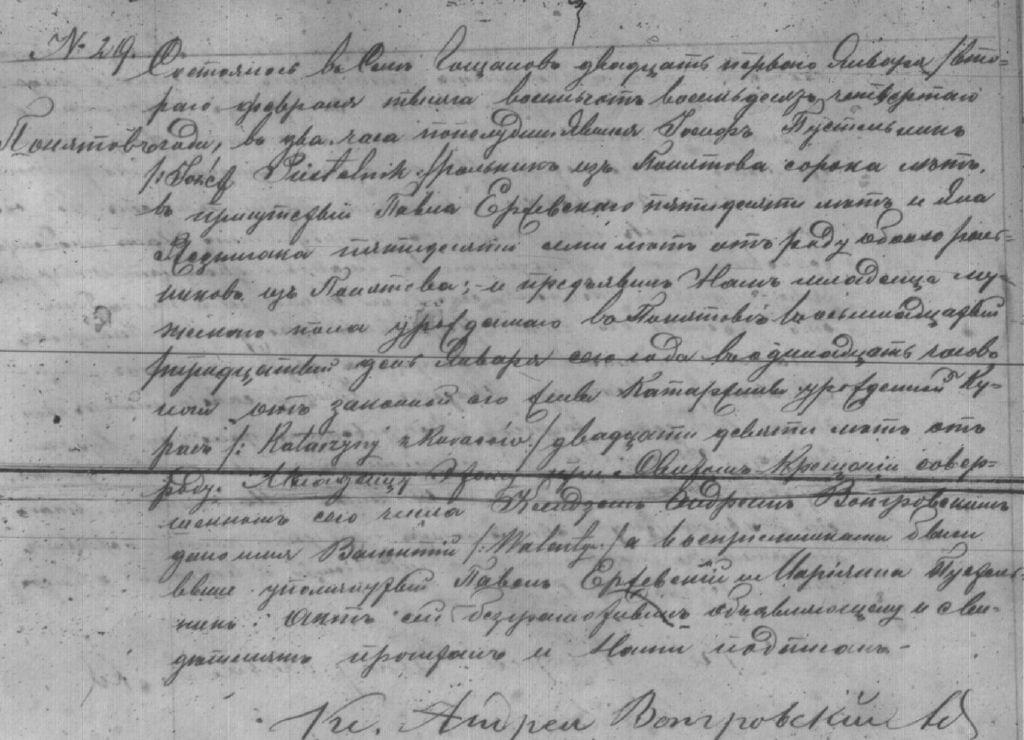 № 29.
Состоялось въ Селѣ Гощановъ двадцать перваго Января /вто-
раго февраля тысяча восемьсотъ восемьдесятъ четвертаго
Понятовъ года, въ два часа пополудни. Явился Іосифъ Пустельникъ
/: Józef Pustelnik рольникъ изъ Понятова сорока лѣтъ,
въ присутствіи Павла Ержевскаго пятидесяти лѣтъ и Яна
пятидесяти семи лѣтъ отъ роду обоихъ роль-
никовъ изъ Понятова; и предъявилъ Намъ младенца му-
жескаго пола урожденнаго въ Понятовѣ
тридцатый день Января сего года въ одинадцать часовъ
ночи отъ законной его жены Катаржины урожденной Ку-
/: Katarzyny z /двадцати девяти лѣтъ отъ
роду. Младенцу этому при Святомъ Крещеніи совер-
шенномъ сего числа Ксендзомъ Андреемъ Вонгровскимъ
дано имя Валентій /: Walenty :/ а воспріемниками были
выше упомянутый Павелъ Ержевскій и Маріянна Пустель-
никъ. Актъ сей безграмотнымъ объявляющему и сви-
дѣтелямъ прочитанъ и Нами подписанъ.-
Кс. Андрей Вонгровскій